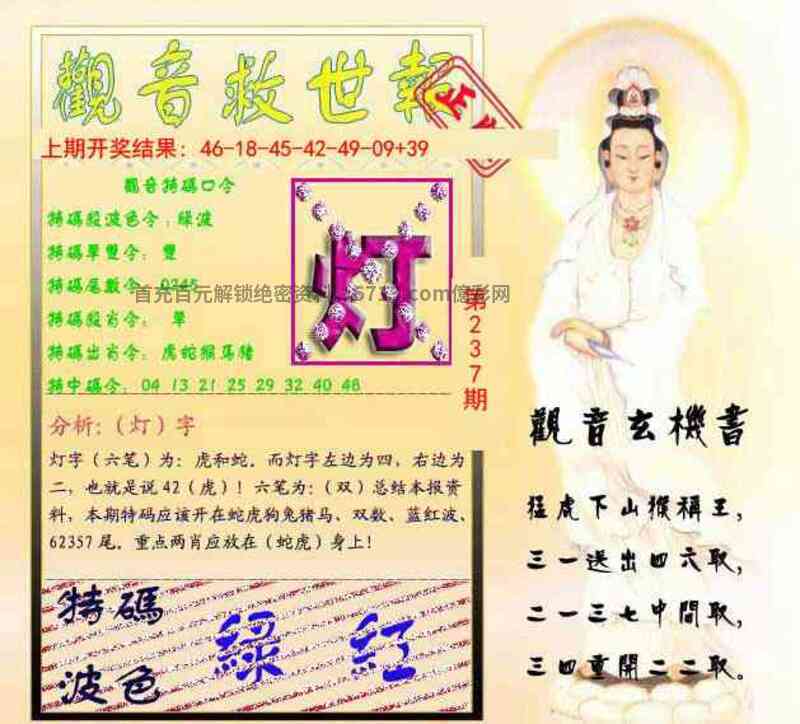 觀音救世報
上期开奖结果：46-18-45-42-49-09+39
觀音特碼口令
特碼殺波色令：綠波
特碼單雙令：雙
特碼尾數令：
首充百元解锁绝密资料
.com億彩网
特碼殺肖令：單
特碼出肖令：虎蛇猴马豬
特中碼令：04 13 21 25 29 32 40 48
灯
第237期
分析：（灯）字
灯字（六笔）为：虎和蛇。而灯字左边为四，右边为
二，也就是说42（虎）！六笔为：（双）总结本报资
料，本期特码应该开在蛇虎狗兔猪马、双数、蓝红波、
62357尾。重点两肖应放在（蛇虎）身上！
特碼
波色
綠 紅
觀音玄機書
猛虎下山猴稱王，
三一送出四六取，
二一三七中間取，
三四重開二二取。